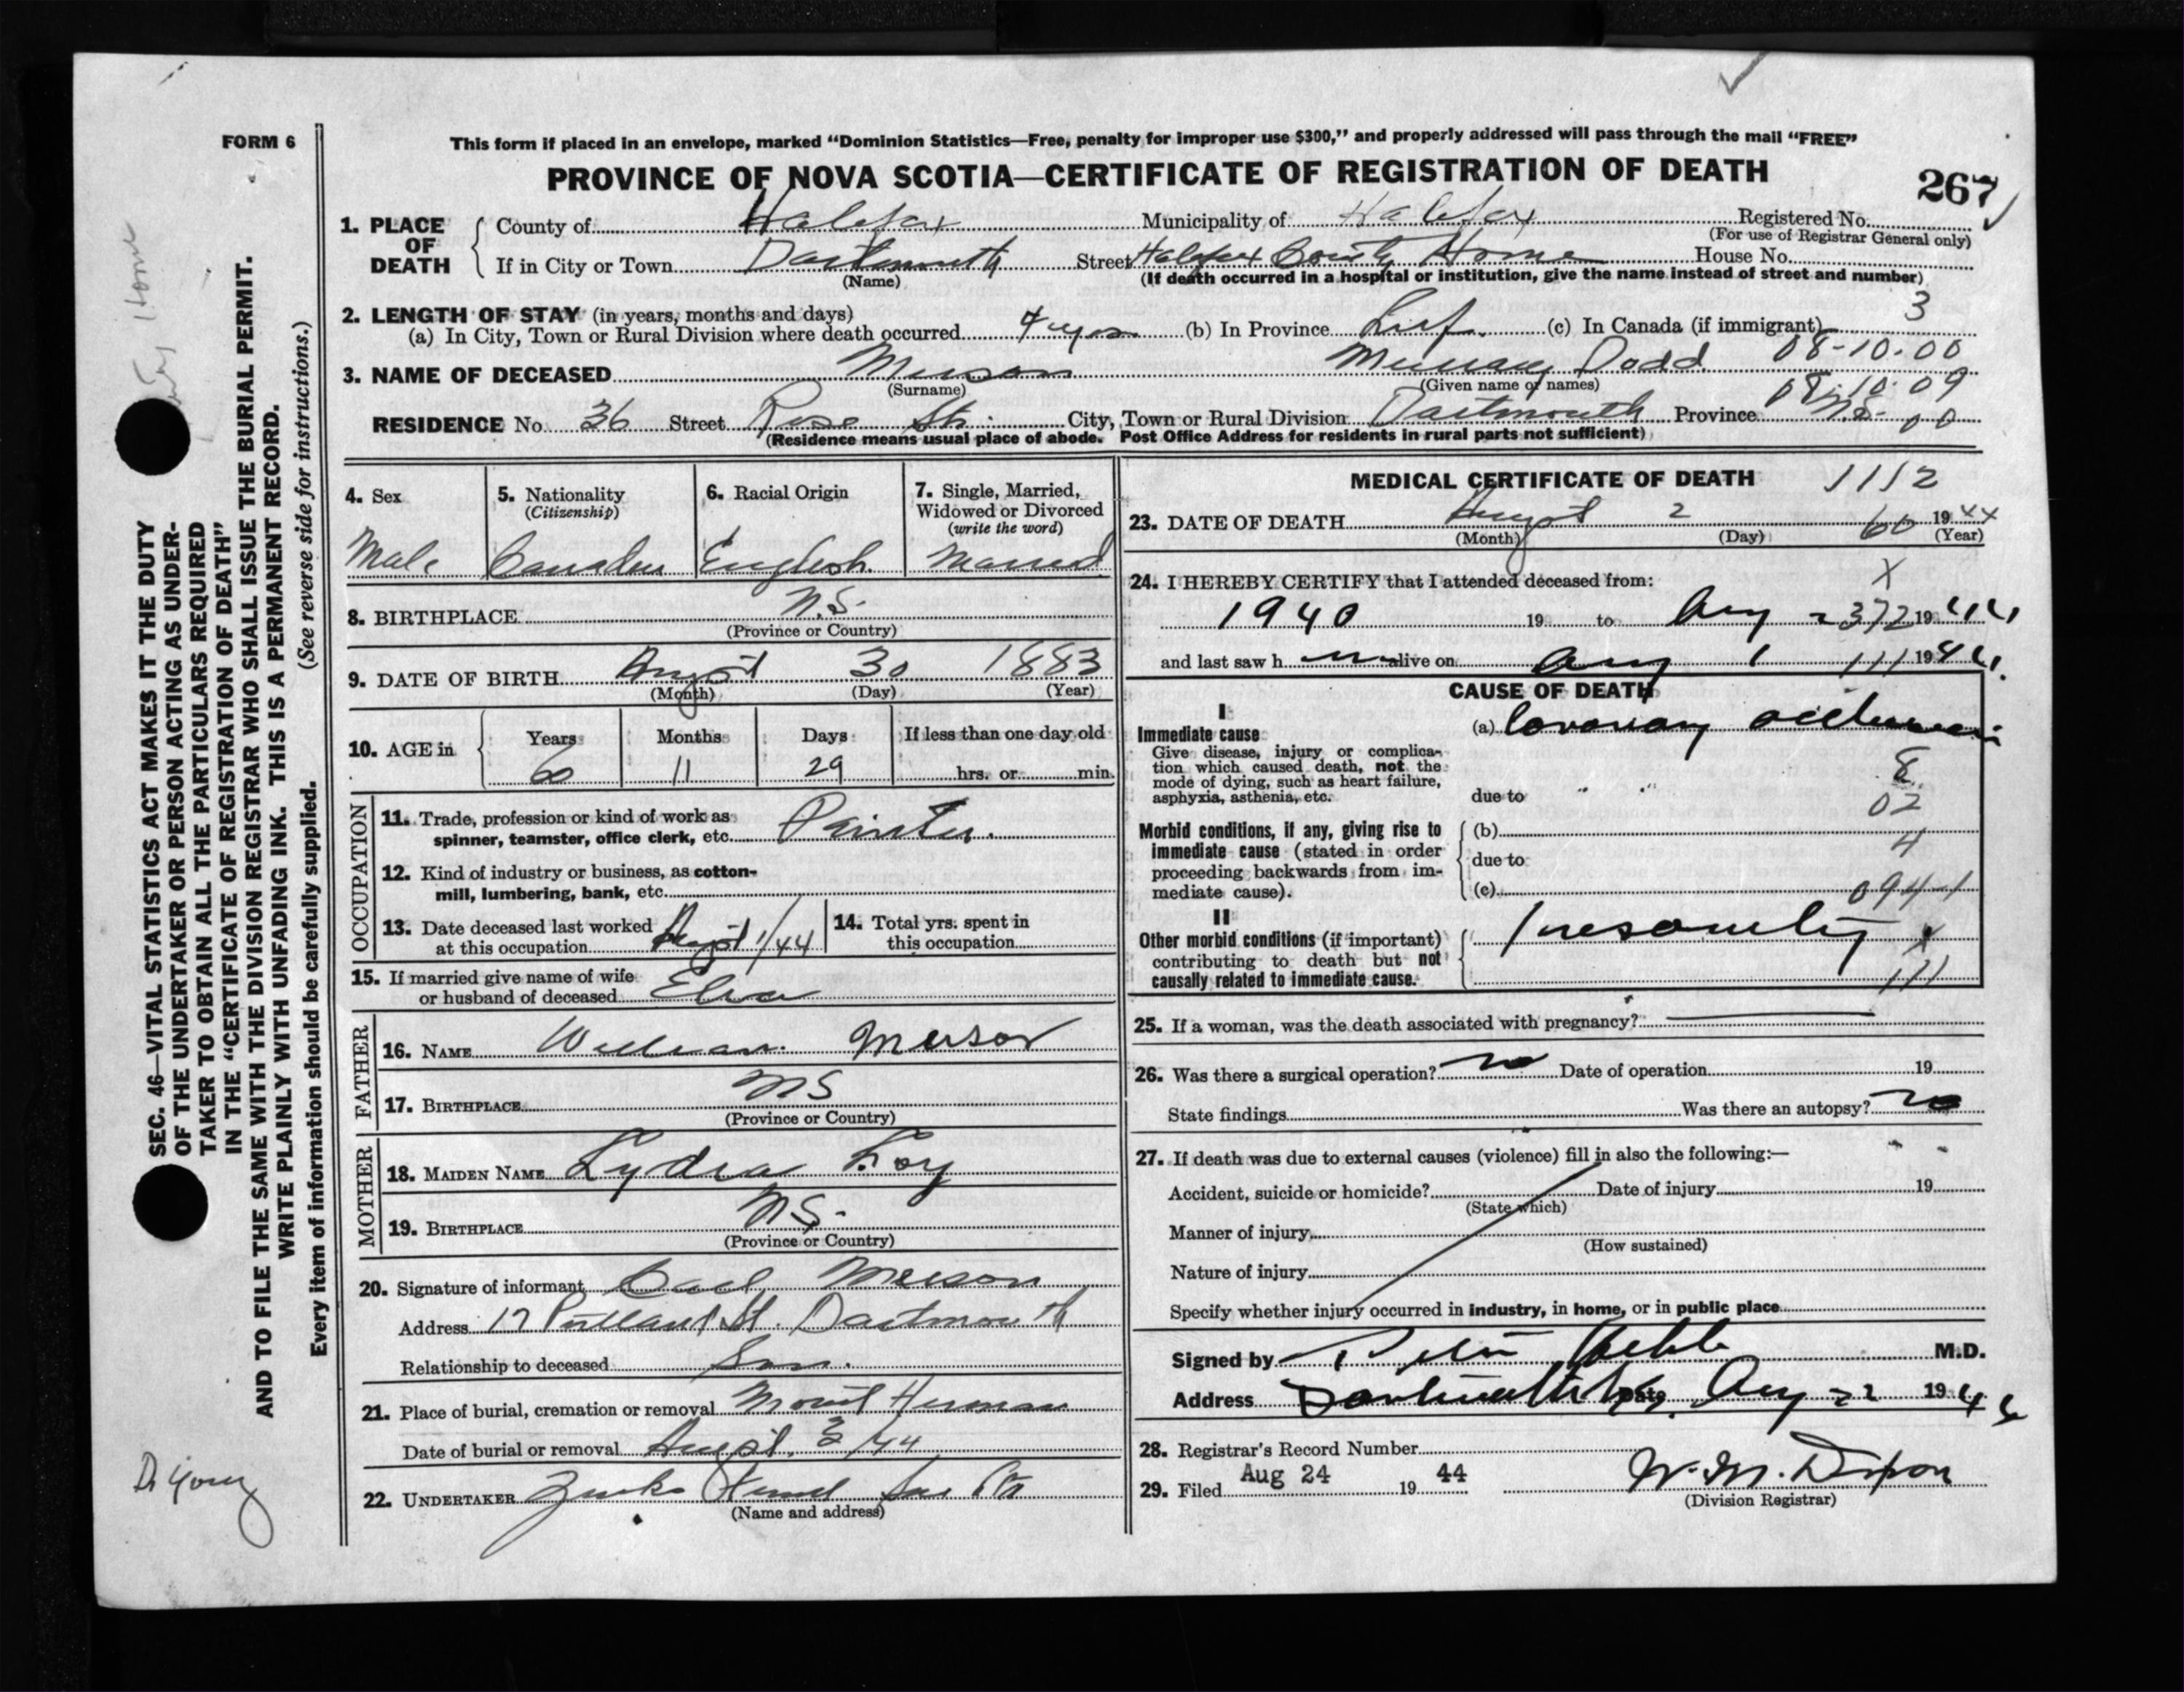 FORM 6
This form if placed in an envelope, marked “Dominion Statistics—Free, penalty for improper use $300,” and properly addressed will pass through the mail “FREE”
PROVINCE OF NOVA SCOTIA—CERTIFICATE OF REGISTRATION OF DEATH
267
1. PLACE OF DEATH
County of Halifax Municipality of Halifax Registered No.
(For use of Registrar General only)
If in City or Town Dartmouth Street Halifax County Home House No.
(Name) (If death occurred in a hospital or institution, give the name instead of street and number)
3
2. LENGTH OF STAY (in years, months and days)
(a) In City, Town or Rural Division where death occurred 4 yrs (b) In Province Life. (c) In Canada (if immigrant)
08-10-00
3. NAME OF DECEASED Murray Dodd
(Surname) (Given name or names)
08-10-09
RESIDENCE No. 36 Street Rose St. City, Town or Rural Division Dartmouth Province N.S. 00
(Residence means usual place of abode. Post Office Address for residents in rural parts not sufficient)
4. Sex
Male
5. Nationality
(Citizenship)
Canadian
6. Racial Origin
English
7. Single, Married, Widowed or Divorced
(write the word)
Married
8. BIRTHPLACE N.S.
(Province or Country)
9. DATE OF BIRTH August 30 1883
(Month) (Day) (Year)
10. AGE in Years Months Days If less than one day old
60 11 29 hrs. or min.
OCCUPATION
11. Trade, profession or kind of work as
spinner, teamster, office clerk, etc. Painter.
12. Kind of industry or business, as cotton-
mill, lumbering, bank, etc.
13. Date deceased last worked
at this occupation August 1/44
14. Total yrs. spent in
this occupation
15. If married give name of wife
or husband of deceased
FATHER
16. NAME William
17. BIRTHPLACE NS
(Province or Country)
MOTHER
18. MAIDEN NAME Lydia
19. BIRTHPLACE NS.
(Province or Country)
20. Signature of informant Carl
Address 17 Portland St. Dartmouth
Relationship to deceased Son.
21. Place of burial, cremation or removal Mount Herman
Date of burial or removal August /44
22. UNDERTAKER
(Name and address)
MEDICAL CERTIFICATE OF DEATH 1112
23. DATE OF DEATH August 2 60 1944
(Month) (Day) (Year)
24. I HEREBY CERTIFY that I attended deceased from:
X
1940 19 to Aug 2 372 1944
and last saw h alive on Aug 1 111 1944.
CAUSE OF DEATH
I
Immediate cause
Give disease, injury or complica-
tion which caused death, not the
mode of dying, such as heart failure,
asphyxia, asthenia, etc.
(a) Coronary
8
due to " "
02
Morbid conditions, if any, giving rise to
immediate cause (stated in order
proceeding backwards from im-
mediate cause).
(b)
4
due to
(c) 094-1
II
Other morbid conditions (if important)
contributing to death but not
causally related to immediate cause.
X
111
25. If a woman, was the death associated with pregnancy?
26. Was there a surgical operation? no Date of operation 19
State findings Was there an autopsy? no
27. If death was due to external causes (violence) fill in also the following:—
Accident, suicide or homicide? Date of injury 19
(State which)
Manner of injury
(How sustained)
Nature of injury
Specify whether injury occurred in industry, in home, or in public place
Signed by M.D.
Address Date Aug 1944
28. Registrar's Record Number
29. Filed Aug 24 19 44 W. M. Dixon
(Division Registrar)
SEC. 46—VITAL STATISTICS ACT MAKES IT THE DUTY
OF THE UNDERTAKER OR PERSON ACTING AS UNDER-
TAKER TO OBTAIN ALL THE PARTICULARS REQUIRED
IN THE “CERTIFICATE OF REGISTRATION OF DEATH”
AND TO FILE THE SAME WITH THE DIVISION REGISTRAR WHO SHALL ISSUE THE BURIAL PERMIT.
WRITE PLAINLY WITH UNFADING INK. THIS IS A PERMANENT RECORD.
Every item of information should be carefully supplied. (See reverse side for instructions.)
Home